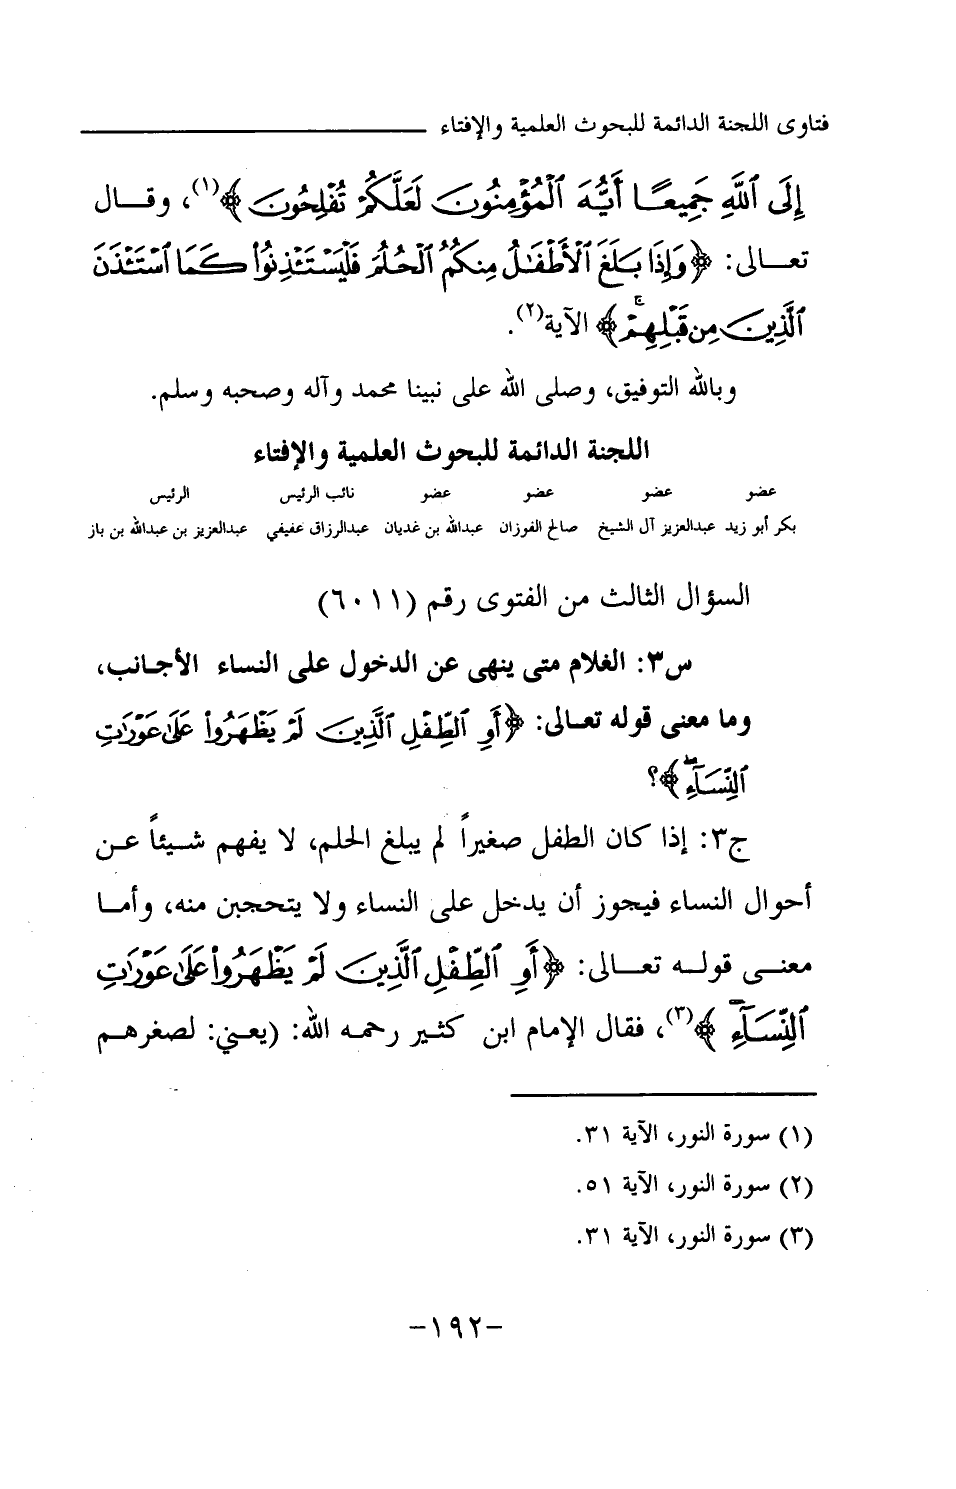 فتاوى اللجنة الدائمة للبحوث العلمية والإفتاء
إِلَى ٱللَّهِ جَمِيعًا أَيُّهَ ٱلْمُؤْمِنُونَ لَعَلَّكُمْ تُفْلِحُونَ ﴾(١)، وقـــال
تعـــالى: ﴿ وَإِذَا بَلَغَ ٱلْأَطْفَـٰلُ مِنكُمُ ٱلْحُلُمَ فَلْيَسْتَـْٔذِنُوا۟ كَمَا ٱسْتَـْٔذَنَ
ٱلَّذِينَ مِن قَبْلِهِمْ ۚ ﴾ الآية(٢).
وبالله التوفيق، وصلى الله على نبينا محمد وآله وصحبه وسلم.
اللجنة الدائمة للبحوث العلمية والإفتاء
عضو عضو عضو عضو نائب الرئيس الرئيس
بكر أبو زيد عبدالعزيز آل الشيخ صالح الفوزان عبدالله بن غديان عبدالرزاق عفيفي عبدالعزيز بن عبدالله بن باز
السؤال الثالث من الفتوى رقم (٦٠١١)
س٣: الغلام متى ينهى عن الدخول على النساء الأجـانب،
وما معنى قوله تعـالى: ﴿ أَوِ ٱلطِّفْلِ ٱلَّذِينَ لَمْ يَظْهَرُوا۟ عَلَىٰ عَوْرَٰتِ
ٱلنِّسَآءِ ۖ ﴾؟
ج٣: إذا كان الطفل صغيراً لم يبلغ الحلم، لا يفهم شـيئاً عـن
أحوال النساء فيجوز أن يدخل على النساء ولا يتحجبن منه، وأمـا
معنـى قولـه تعـــالى: ﴿ أَوِ ٱلطِّفْلِ ٱلَّذِينَ لَمْ يَظْهَرُوا۟ عَلَىٰ عَوْرَٰتِ
ٱلنِّسَآءِ ۖ ﴾(٣)، فقال الإمام ابن كثـير رحمـه الله: (يعـني: لصغرهـم
(١) سورة النور، الآية ٣١.
(٢) سورة النور، الآية ٥١.
(٣) سورة النور، الآية ٣١.
-١٩٢-